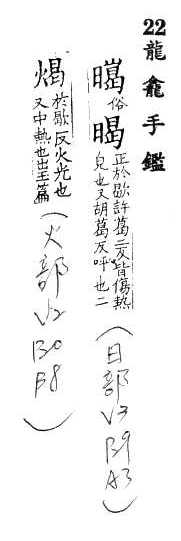 22 龍龕手鑑
暍俗暍正於歇許葛二反皆傷熱
皃也又胡葛反呼也二
(日部 V3 B9 A3)
㷎於歇反火光也
又中熱也出玉篇
(火部 V2 B0 B8)